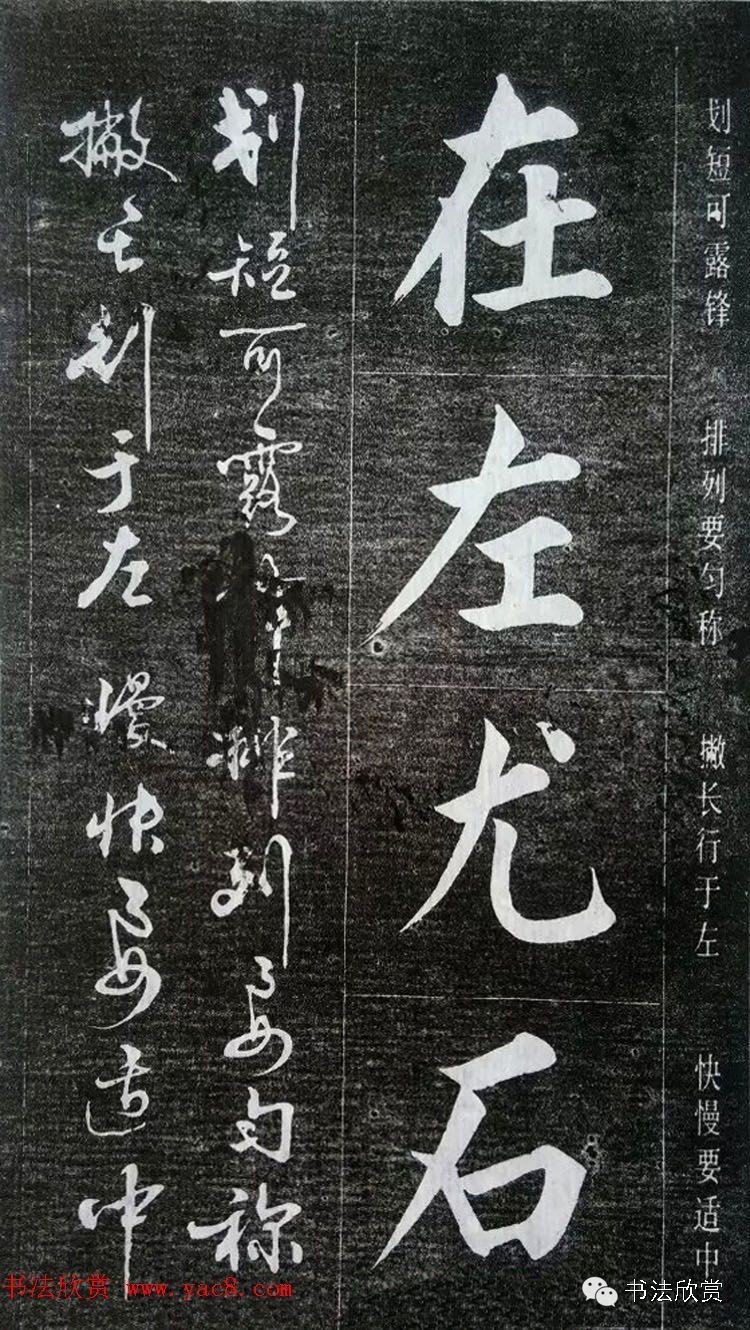 划短可露锋 排列要匀称 撇长行于左 快慢要适中
在左尤石
划短可露锋排列要匀称
撇长于左慢快要适中
书法欣赏 www.yac8.com
书法欣赏